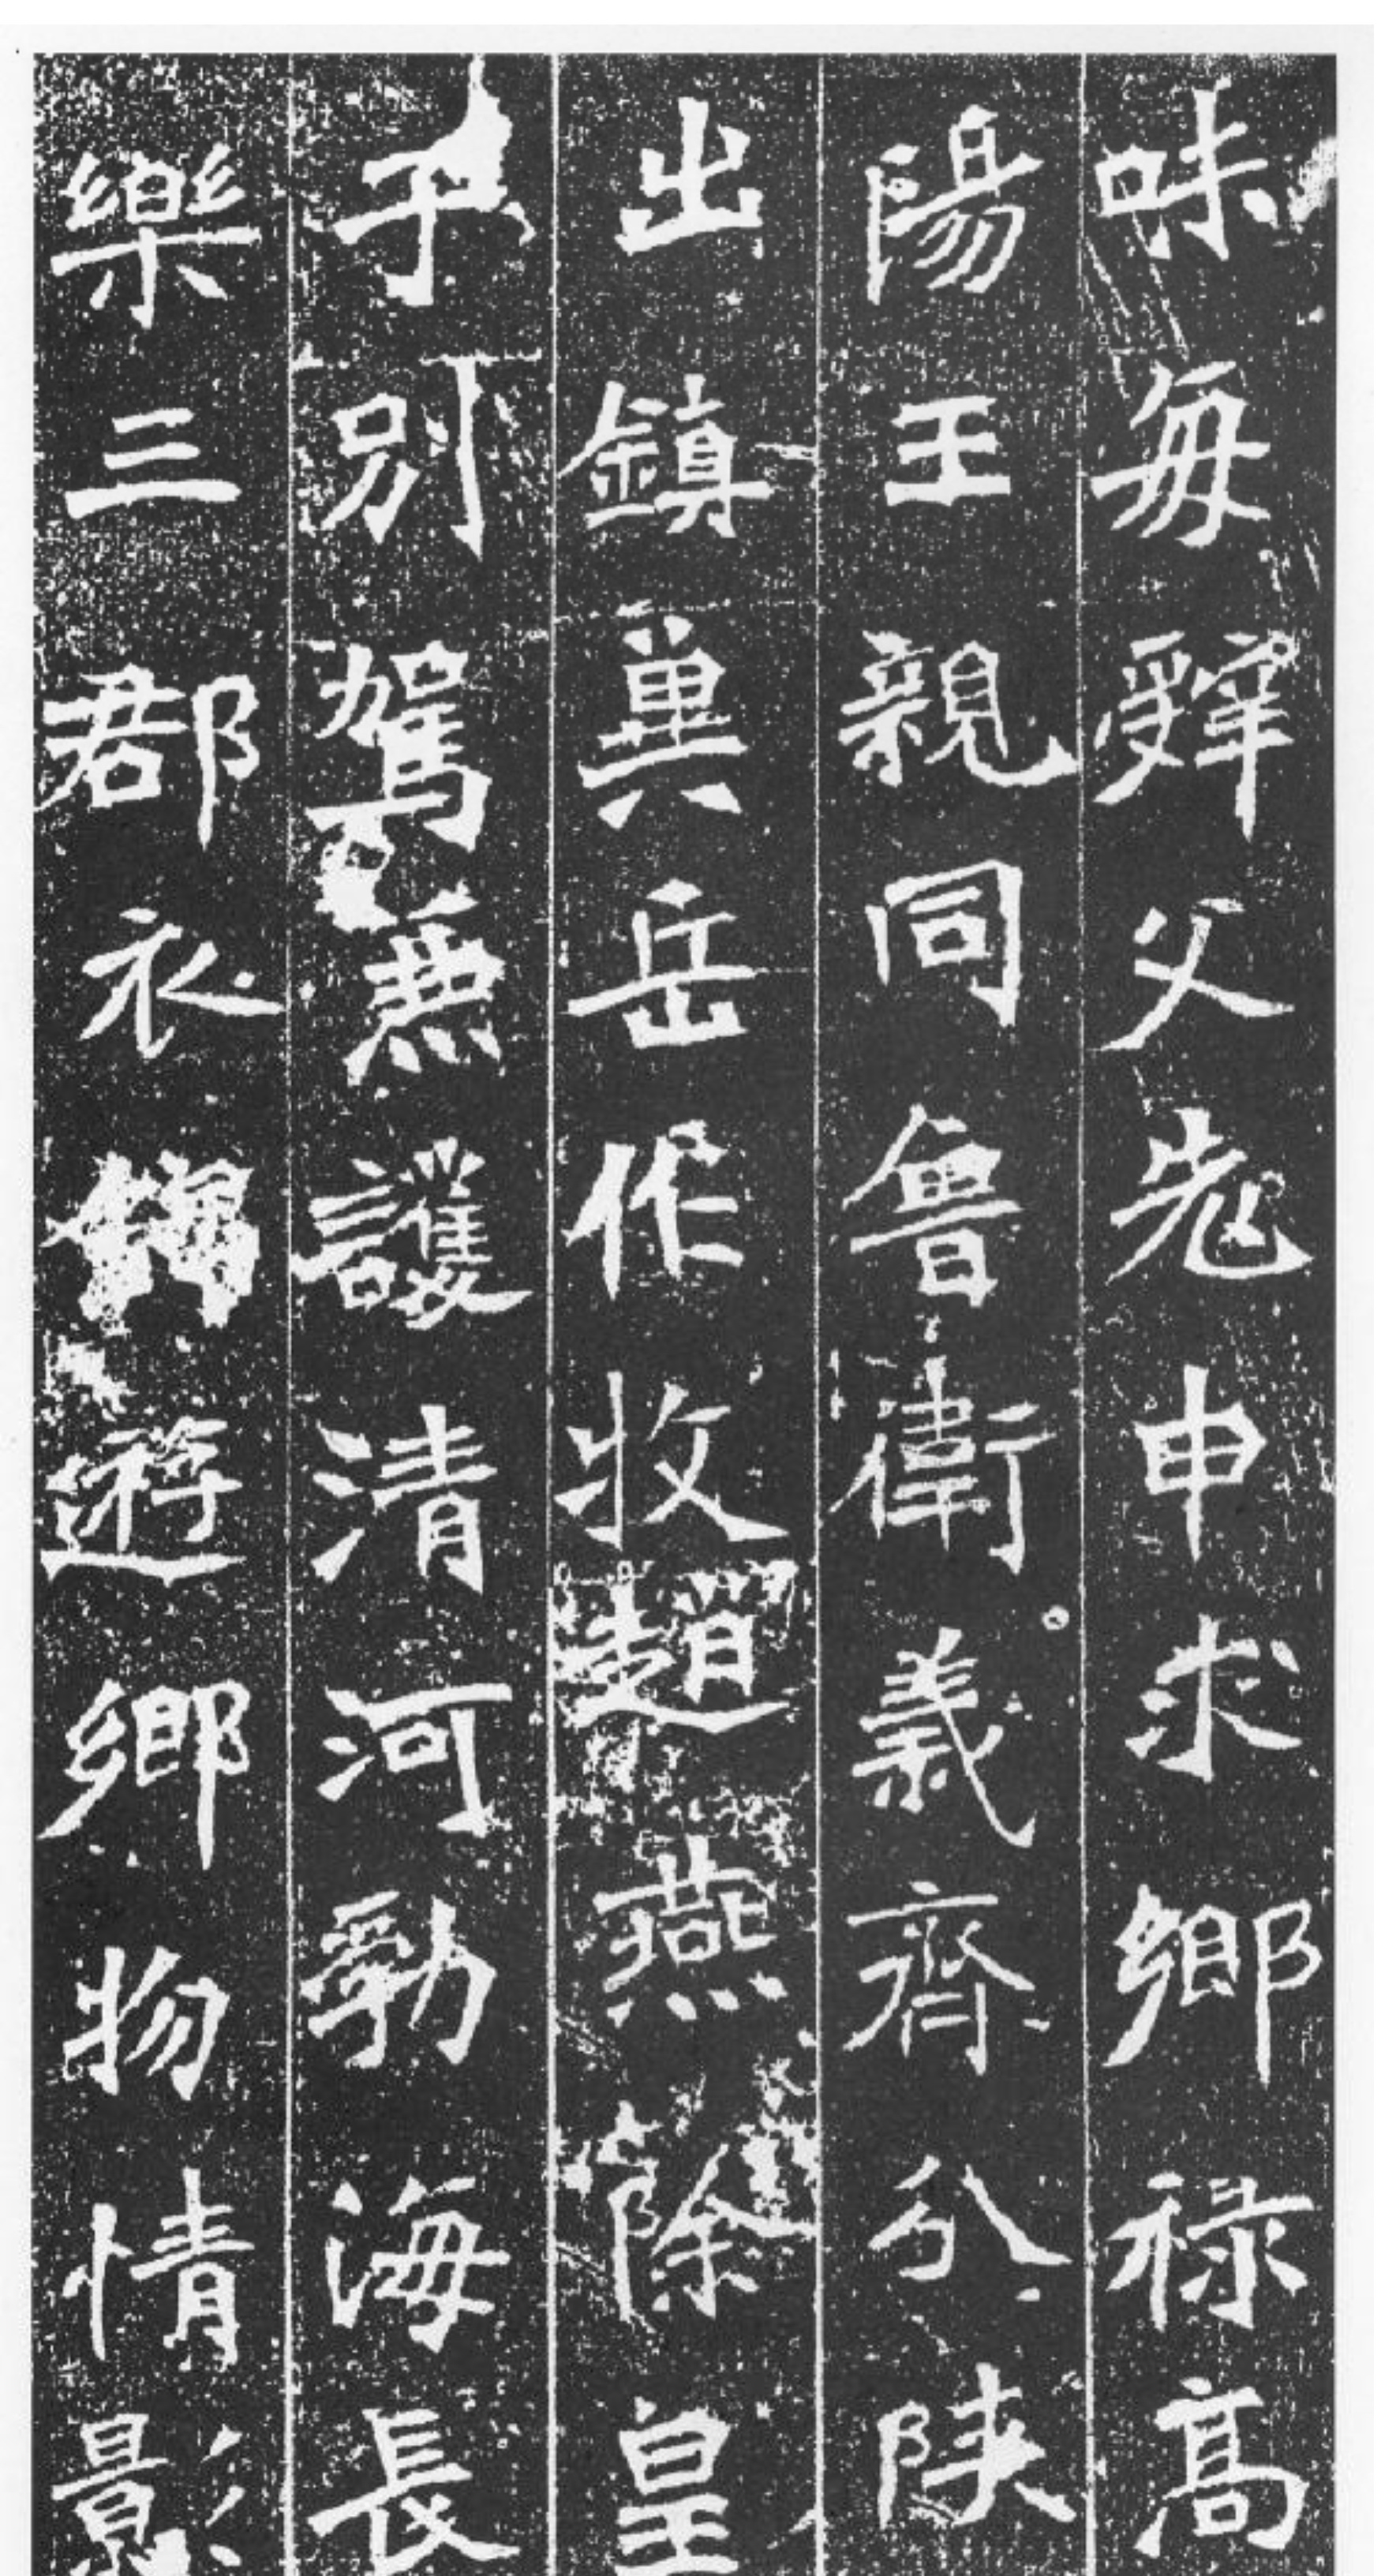 味每辭父老申求鄉祿高
陽王親同魯衛義齊分陝
出鎮冀岳作牧趙燕除皇
子別駕兼護清河勃海長
樂三郡衣錦遊鄉物情影